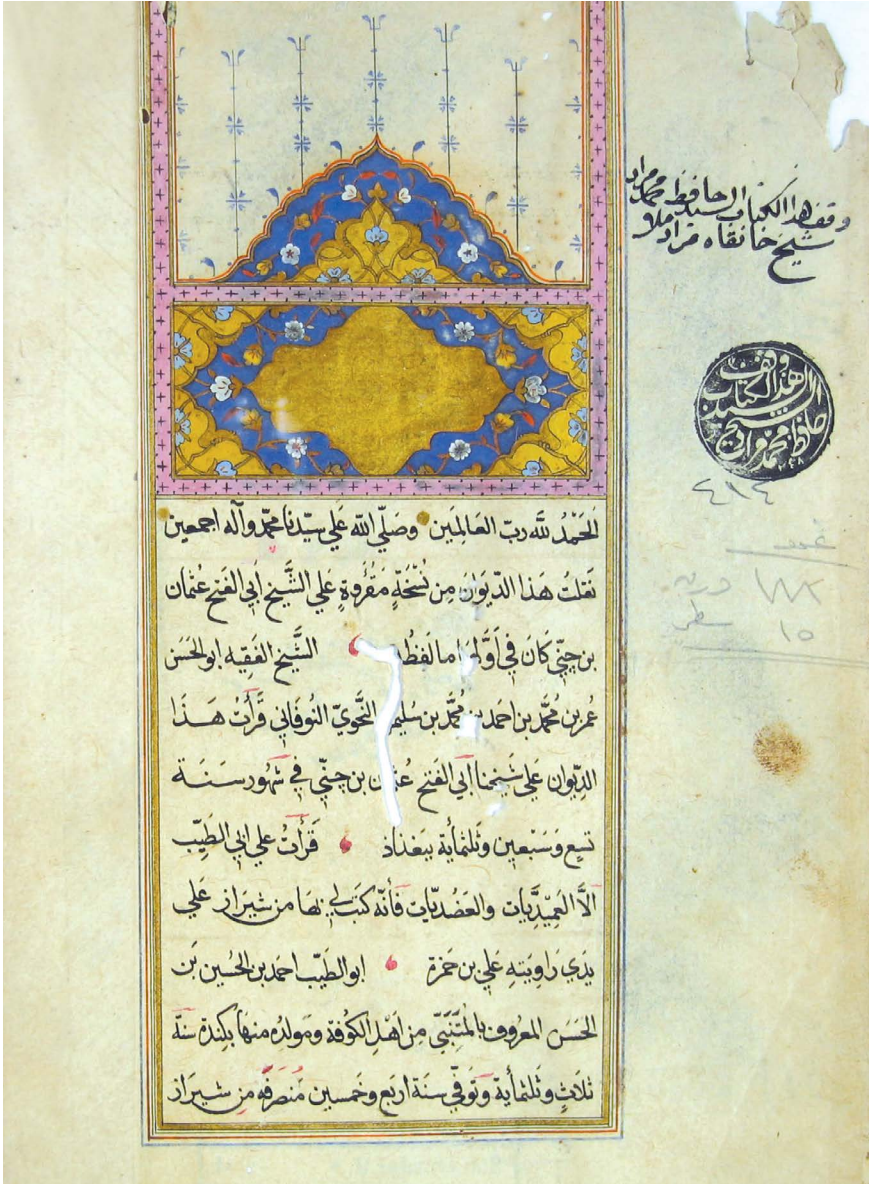 وقف هذا الكتاب السيد الحافظ محمد مراد
شيخ خانقاه مراد ملا
وقف
هذا الكتاب
السيد الشيخ
حافظ محمد مراد
٤١٤
١٥ سطر
الحَمْدُ للّه ربّ العَالمِين وصَلّي اللّه عَلي سيّدنا محمّد وآله اجمعين
نَقلتُ هَذا الدّيوَانَ مِن نُسْخَةٍ مَقْرُوةٍ عَلي الشَّيخ أبي الفَتح عُثمان
بن جنّي كَانَ في أوَّلها ما لَفظُه الشَّيخ الفَقِيه ابو الحَسَن
عُمر بن مُحمَّد بن احمد بن مُحمَّد بن سُليمن النَّحويّ النُوقَاني قَرأتُ هَذَا
الدِّيوان عَلي شَيخنا أبي الفَتح عُثمان بن جنّي في شهُور سَنَة
تسِع وَسَبْعين وثَلثمأية ببَغدَاذ قَرأتُ علي ابي الطَيِّب
اَلاَّ العَمِيْدِيَّات والعَضُديّات فَأنّه كتَب لي بهَا من شيرَاز عَلي
يدَي رَاوِيَتهِ عَلي بن حَمزة ابو الطَيّب احمد بن الحُسين بَن
الحَسَن المعرُوف بالمُتَنَبّي مِن اَهْل الكُوفة ومَولدُه منهَا بكِندة سنة
ثلَاثٍ وثَلثمأية وَتَوفّي سنَة أربَع وخَمسين مُنصَرفَه مِن شيرَاز